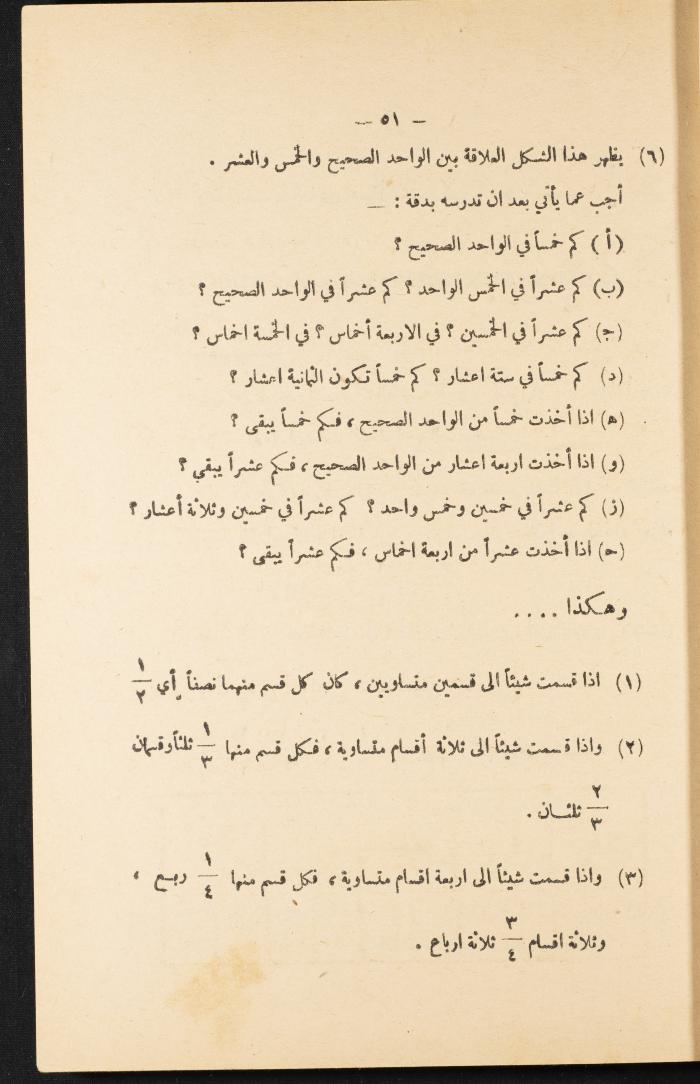 — ٥١ —
(٦) يظهر هذا الشكل العلاقة بين الواحد الصحيح والخمس والعشر .
أجب عما يأتي بعد ان تدرسه بدقة : —
(أ) كم خمساً في الواحد الصحيح ؟
(ب) كم عشراً في الخمس الواحد ؟ كم عشراً في الواحد الصحيح ؟
(ج) كم عشراً في الخمسين ؟ في الاربعة أخماس ؟ في الخمسة اخماس ؟
(د) كم خمساً في ستة اعشار ؟ كم خمساً تكون الثمانية اعشار ؟
(ه) اذا أخذت خمساً من الواحد الصحيح ، فكم خمساً يبقى ؟
(و) اذا أخذت اربعة اعشار من الواحد الصحيح ، فكم عشراً يبقي ؟
(ز) كم عشراً في خمسين وخمس واحد ؟ كم عشراً في خمسين وثلاثة أعشار ؟
(ح) اذا أخذت عشراً من اربعة اخماس ، فكم عشراً يبقى ؟
وهكذا ....
(١) اذا قسمت شيئاً الى قسمين متساويين ، كان كل قسم منهما نصفاً أي ١/٢
(٢) واذا قسمت شيئاً الى ثلاثة أقسام متساوية ، فكل قسم منها ١/٣ ثلثاً وقسمان
٢/٣ ثلثان .
(٣) واذا قسمت شيئاً الى اربعة اقسام متساوية ، فكل قسم منها ١/٤ ربع ،
وثلاثة اقسام ٣/٤ ثلاثة ارباع .